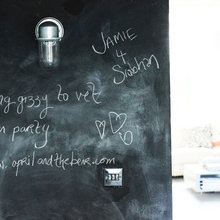 JAMIE
4
Siobhan
ng grizzy to vet
n parity
w. aprilandthebear.com